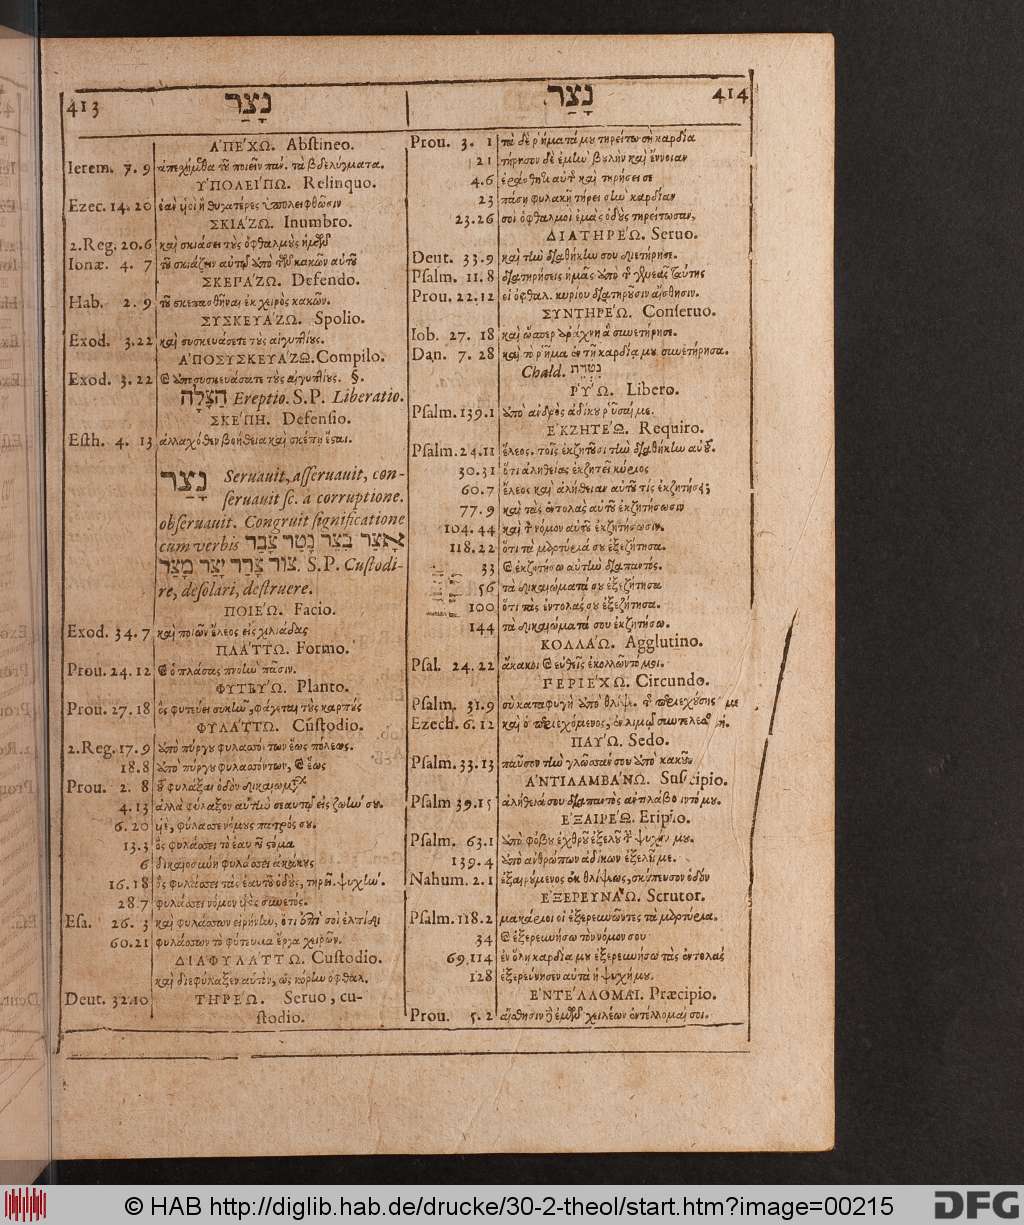 413 נָצַר
ἈΠΈΧΩ. Abſtineo.
Ierem. 7. 9
ὙΠΟΛΕΊΠΩ. Relinquo.
Ezec. 14. 20 ἐὰν υἱοὶ ἢ θυγατέρες ὑπολειφθῶσιν
ΣΚΙΆΖΩ. Inumbro.
2.Reg. 20.6 καὶ σκιάσει τοὺς ὀφθαλμοὺς ἡμῶν
Ionæ. 4. 7 τοῦ σκιάζειν αὐτῷ ἀπὸ τῶν κακῶν αὐτοῦ
ΣΚΕΡΆΖΩ. Defendo.
Hab. 2. 9 τοῦ σκεπασθῆναι ἐκ χειρὸς κακῶν.
ΣΥΣΚΕΥΆΖΩ. Spolio.
Exod. 3.22 καὶ συσκευάσετε τοὺς αἰγυπτίους.
ἈΠΟΣΥΣΚΕΥΆΖΩ. Compilo.
Exod. 3. 22 τοὺς αἰγυπτίους. §.
הַצָּלָה Ereptio. S.P. Liberatio.
ΣΚΈΠΗ. Defenſio.
Eſth. 4. 13 ἀλλαχόθεν βοήθεια καὶ σκέπη ἔσται.
נָצַר Seruauit, aſſeruauit, con-
ſeruauit ſc. a corruptione.
obſeruauit. Congruit ſignificatione
cum verbis אָצַר בָצַר נָטַר צָבַר
צוּר צָרַר יָצַר מָצַר. S.P. Cuſtodi-
re, deſolari, deſtruere.
ΠΟΙΈΩ. Facio.
Exod. 34. 7 καὶ ποιῶν ἔλεος εἰς χιλιάδας
ΠΛΆΤΤΩ. Formo.
Prou. 24. 12 ὁ πλάσας πνοὴν πᾶσιν.
ΦΥΤΕΎΩ. Planto.
Prou. 27. 18 ὃς φυτεύει συκῆν, φάγεται τοὺς καρποὺς
ΦΥΛΆΤΤΩ. Cuſtodio.
2.Reg. 17. 9 ἀπὸ πύργου φυλασσόντων ἕως πόλεως.
18.8 ἀπὸ πύργου φυλασσόντων, καὶ ἕως
Prou. 2. 8 τοῦ φυλάξαι ὁδὸν
4. 13 ἀλλὰ φύλαξον αὐτὴν σεαυτῷ εἰς ζωήν σου.
6. 20 υἱὲ, φύλασσε νόμους πατρός σου.
13.3 ὃς φυλάσσει τὸ ἑαυτοῦ στόμα
6 δικαιοσύνη φυλάσσει ἀκάκους
16. 18 ὃς φυλάσσει τὰς ἑαυτοῦ ὁδοὺς, τηρεῖ ψυχήν.
28.7 φυλάσσει νόμον υἱὸς συνετός.
Eſa. 26. 3 καὶ φυλάσσων εἰρήνην, ὅτι ἐπὶ σοὶ
60.21 φυλάσσων τὸ φύτευμα ἔργα χειρῶν.
ΔΙΑΦΥΛΆΤΤΩ. Cuſtodio.
καὶ διεφύλαξεν αὐτὸν, ὡς κόρην ὀφθαλ.
Deut. 32.10 ΤΗΡΈΩ. Seruo, cu-
ſtodio.
נָצַר 414
Prou. 3. 1 τὰ δὲ ῥήματά μου τηρείτω σὴ καρδία
21 τήρησον δὲ ἐμὴν βουλὴν καὶ ἔννοιαν
4.6 ἐράσθητι αὐτῆς καὶ τηρήσει σε
23 πάσῃ φυλακῇ τήρει σὴν καρδίαν
23.26 σοὶ ὀφθαλμοὶ ἐμὰς ὁδοὺς τηρείτωσαν,
ΔΙΑΤΗΡΈΩ. Seruo.
Deut. 33.9 καὶ τὴν διαθήκην σου διετήρησε.
Pſalm. 11. 8 διατηρήσεις ἡμᾶς ἀπὸ τῆς γενεᾶς ταύτης
Prou. 22. 12 οἱ ὀφθαλ. κυρίου διατηροῦσιν αἴσθησιν.
ΣΥΝΤΗΡΈΩ. Conſeruo.
Iob. 27. 18 καὶ ὥσπερ ἀράχνη ἃ συνετήρησε.
Dan. 7. 28 καὶ τὸ ῥῆμα ἐν τῇ καρδίᾳ μου συνετήρησα.
Chald. נִטְרֵת
ῬΎΩ. Libero.
Pſalm. 139.1 ἀπὸ ἀνδρὸς ἀδίκου ῥῦσαί με.
ἘΚΖΗΤΈΩ. Requiro.
Pſalm. 24. 11 ἔλεος. τοῖς ἐκζητοῦσι τὴν διαθήκην αὐτοῦ.
30.31 ὅτι ἀληθείας ἐκζητεῖ κύριος
60.7 ἔλεος καὶ ἀλήθειαν αὐτοῦ τίς ἐκζητήσει;
77. 9 καὶ τὰς ἐντολὰς αὐτοῦ ἐκζητήσωσιν
104. 44 καὶ τὸν νόμον αὐτοῦ ἐκζητήσωσιν.
118.22 ὅτι τὰ μαρτύριά σου ἐξεζήτησα.
33 καὶ ἐκζητήσω αὐτὴν διαπαντός.
56 τὰ δικαιώματά σου ἐξεζήτησα
100 ὅτι τὰς ἐντολάς σου ἐξεζήτησα.
144 τὰ δικαιώματά σου ἐκζητήσω.
ΚΟΛΛΆΩ. Agglutino.
Pſal. 24. 22 ἄκακοι καὶ εὐθεῖς ἐκολλῶντό μοι.
ΠΕΡΙΈΧΩ. Circundo.
Pſalm. 31.9 σὺ καταφυγὴ ἀπὸ θλίψε. τῆς περιεχούσης με
Ezech. 6. 12 καὶ ὁ περιεχόμενος, ἐν λιμῷ
ΠΑΎΩ. Sedo.
Pſalm. 33. 13 παῦσον τὴν γλῶσσάν σου ἀπὸ κακοῦ
ἈΝΤΙΛΑΜΒΆΝΩ. Suſcipio.
Pſalm 39.15 ἀλήθειά σου διαπαντὸς ἀντιλάβοιντό μου.
ἘΞΑΙΡΈΩ. Eripio.
Pſalm. 63.1 ἀπὸ φόβου ἐχθροῦ ἐξελοῦ τὴν ψυχήν μου.
139.4 ἀπὸ ἀνθρώπων ἀδίκων ἐξελοῦ με.
Nahum. 2. 1 ἐξαιρούμενος ἐκ θλίψεως, σκόπευσον ὁδὸν
ἘΞΕΡΕΥΝΆΩ. Scrutor.
Pſalm. 118.2 μακάριοι οἱ ἐξερευνῶντες τὰ μαρτύρια.
34 καὶ ἐξερευνήσω τὸν νόμον σου
69.114 ἐν ὅλῃ καρδίᾳ μου ἐξερευνήσω τὰς ἐντολάς
128 ἐξερεύνησεν αὐτὰ ἡ ψυχή μου.
ἘΝΤΈΛΛΟΜΑΙ. Præcipio.
Prou. 5. 2 αἴσθησιν ἐμῶν χειλέων ἐντέλλομαί σοι.
© HAB http://diglib.hab.de/drucke/30-2-theol/start.htm?image=00215
DFG